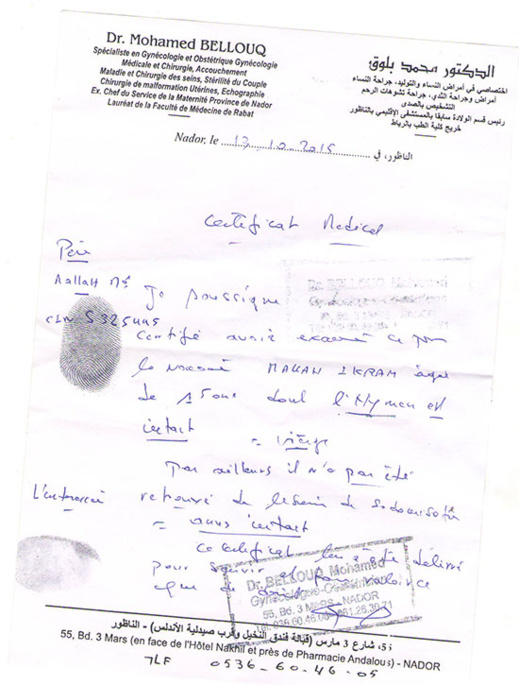 Dr. Mohamed BELLOUQ
Spécialiste en Gynécologie et Obstétrique Gynécologie
Médicale et Chirurgie, Accouchement
Maladie et Chirurgie des seins, Stérilité du Couple
Chirurgie de malformation Utérines, Echographie
Ex. Chef du Service de la Maternité Province de Nador
Lauréat de la Faculté de Médecine de Rabat
الدكتور محمد بلوق
اختصاصي في أمراض النساء والتوليد، جراحة النساء
أمراض وجراحة الثدي، جراحة تشوهات الرحم
التشخيص بالصدى
رئيس قسم الولادة سابقا بالمستشفى الإقليمي بالناظور
خريج كلية الطب بالرباط
Nador, le 13.10.2015 الناظور، في
Certificat Medical
Dr. BELLOUQ Mohamed
Père
Je soussigné
CIN S325445
Certifie avoir examiné ce jour
la nommée IKRAM âgée
de 15 ans dont l'Hymen est
intact = vierge
Par ailleurs il n'a pas été
retrouvé de lésion de
= anus intact
Ce certificat lui a été délivré
pour servir et valoir ce
que de droit
Dr. BELLOUQ Mohamed
55, Bd. 3 MARS - NADOR
55، شارع 3 مارس (قبالة فندق النخيل وقرب صيدلية الأندلس) - الناظور
55, Bd. 3 Mars (en face de l'Hôtel Nakhil et près de Pharmacie Andalous) - NADOR
TLF 0536-60-46-05